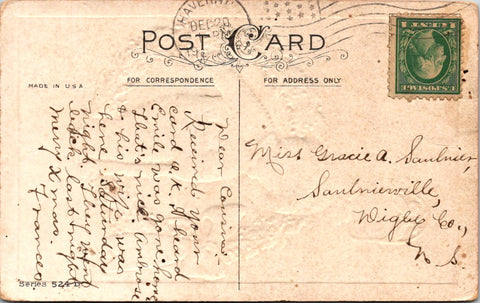 HAVERHI
DEC 20
POST CARD
FOR CORRESPONDENCE
FOR ADDRESS ONLY
MADE IN U.S.A
Dear Cousin:
Received your
card O.K. I heard
Emile was gone home
that's nice. Ambrose
& his wife was
here Saturday
night. They went
back last night
Merry Xmas.
Frances
Miss Gracie A. Saulnier,
Saulnierville,
Digby Co.,
N S
Series 524